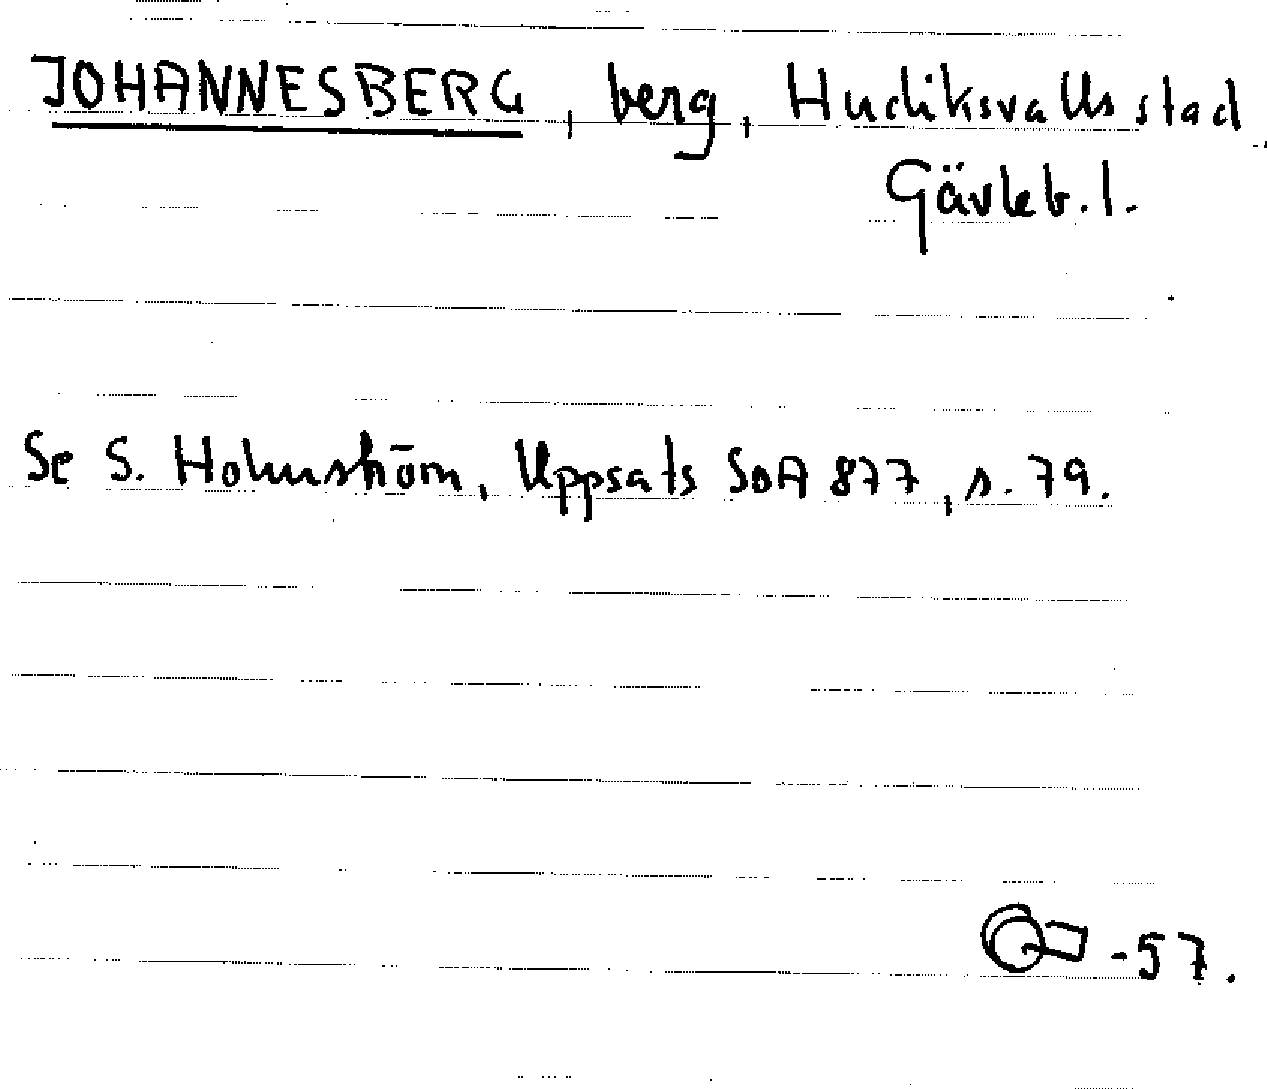 JOHANNESBERG, berg, Hudiksvalls stad
Gävleb. l.
Se S. Holmström, Uppsats SOA 877, s. 79.
-57.